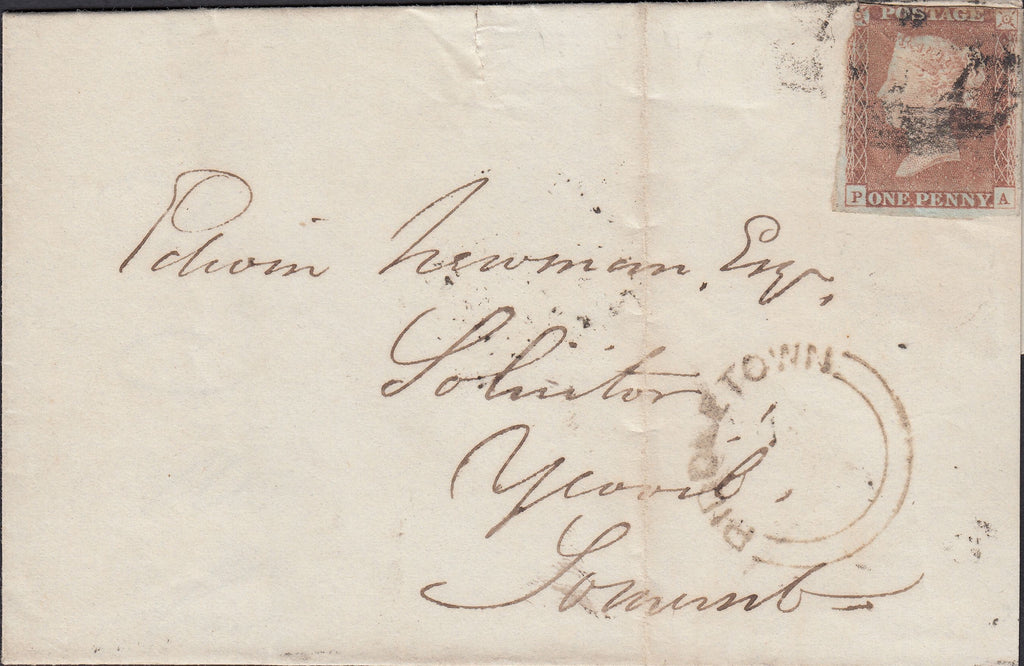 POSTAGE
P ONE PENNY A
Edwin Newman. Esq.,
Solicitor,
Yeovil,
Somerset
TOWN